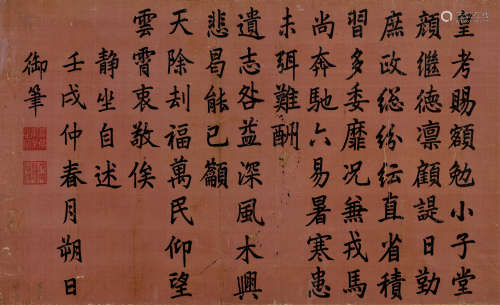 皇考賜額勉小子堂
顔繼德凛顧諟日勤
庶政総紛紜直省積
習多委靡况兼戎馬
尚奔馳六易暑寒患
未弭難酬
遺志咎益深風木興
悲曷能已籲
天除刦福萬民仰望
雲霄衷敬俟
静坐自述
壬戌仲春月朔日
御筆